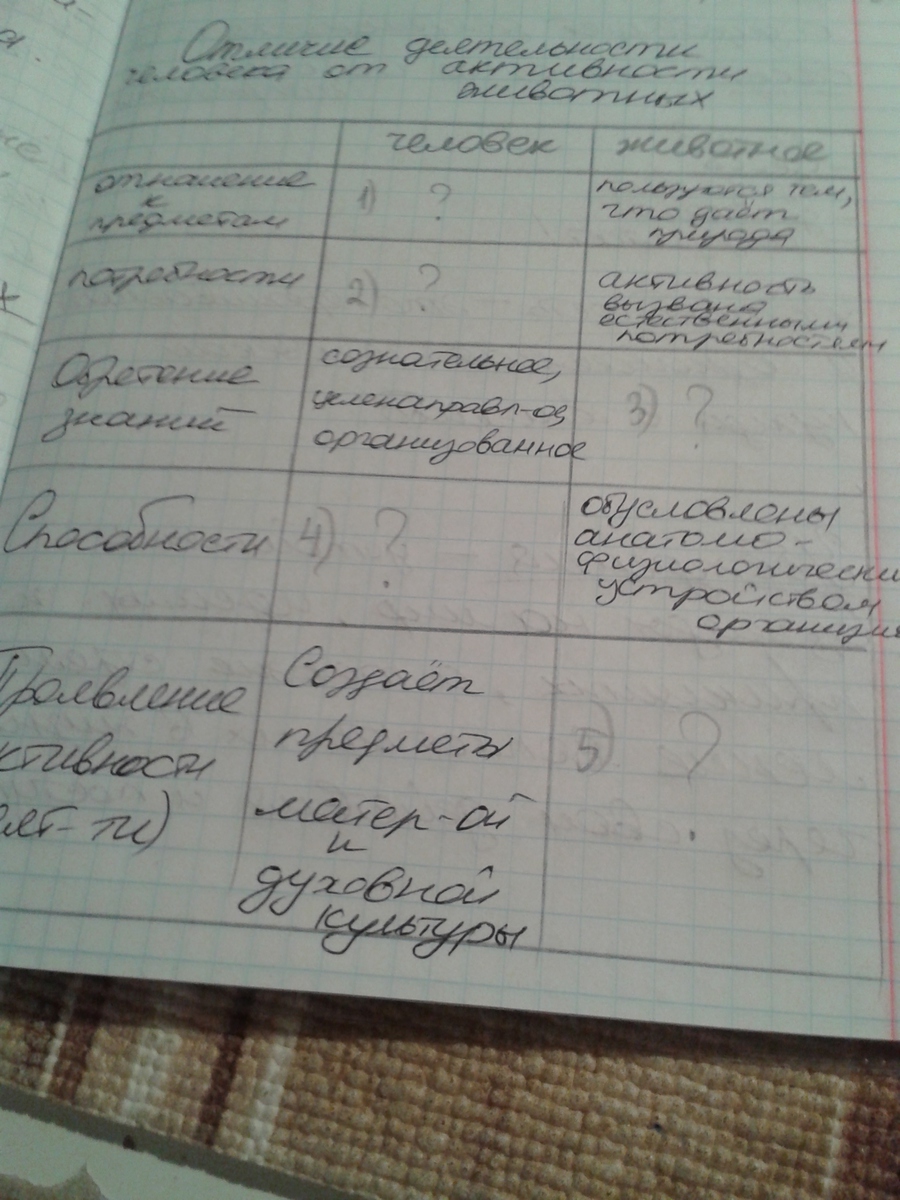 Отличие деятельности
человека от активности
животных
человек
животное
отношение
к
предметам
1) ?
пользуются тем,
что даёт
природа
потребности
2) ?
активность
вызвана
естественными
потребностями
Обретение
знаний
сознательное,
целенаправл-ое,
организованное
3) ?
Способности
4) ?
обусловлены
анатомо-
физиологически
устройством
организм
Проявление
ктивности
еят-ти)
Создаёт
предметы
матер-ой
и
духовной
культуры
5) ?